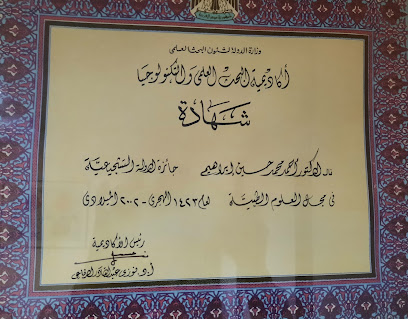 وزارة الدولة لشئون البحث العلمى
أكاديمية البحث العلمى والتكنولوجيا
شهادة
نال الدكتور أحمد محمد حسين ابراهيم جائزة الدولة التشجيعية
فى مجال العلوم الطبية لعام ١٤٢٣ الهجرى - ٢٠٠٢ الميلادى
رئيس الأكاديمية
أ.د. فوزى عبدالقادر الرفاعى